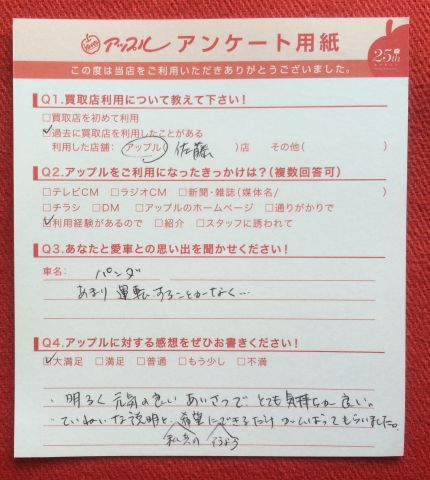 Apple アップル アンケート用紙
25th
この度は当店をご利用いただきありがとうございました。
Q1.買取店利用について教えて下さい！
□買取店を初めて利用
☑過去に買取店を利用したことがある
利用した店舗： アップル( 佐藤 )店 その他( )
Q2.アップルをご利用になったきっかけは？(複数回答可)
□テレビCM □ラジオCM □新聞・雑誌(媒体名/ )
□チラシ □DM □アップルのホームページ □通りがかりで
☑利用経験があるので □紹介 □スタッフに誘われて
Q3.あなたと愛車との思い出を聞かせてください！
車名： パンダ
あまり運転することがなく…
Q4.アップルに対する感想をぜひお書きください！
☑大満足 □満足 □普通 □もう少し □不満
・明るく元気の良いあいさつでとても気持ちが良い。
・ていねいな説明と、希望にできるだけがんばってもらいました。
私共の そうよう